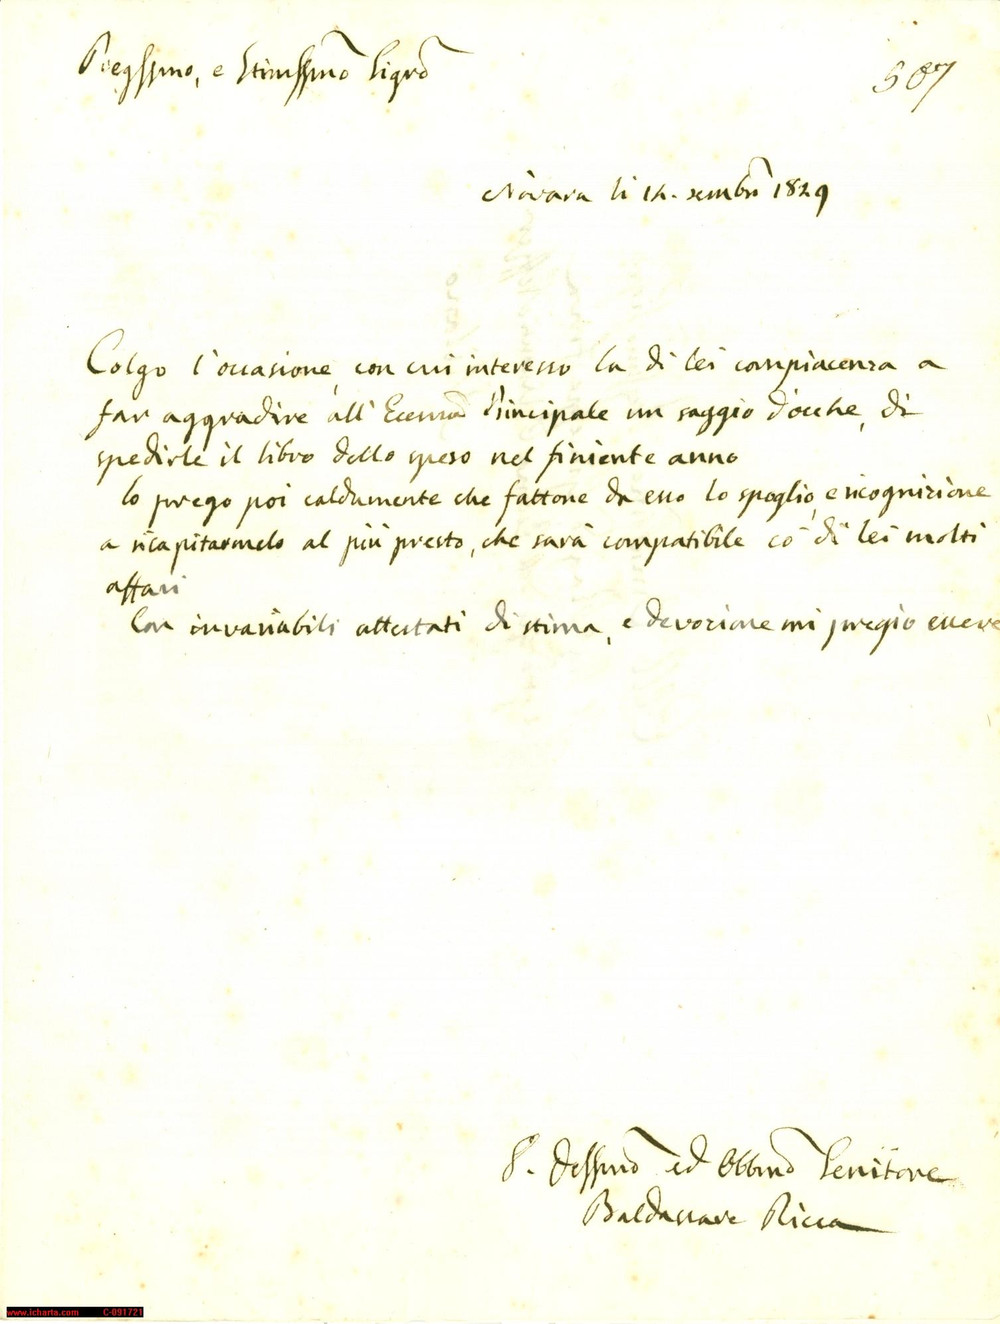 Pregssmo, e Stimssmo Sigre
507
Novara li 14. xembre 1829
Colgo l'occasione, con cui interesso la di lei compiacenza a
far aggradire all' Eccma Principale un saggio d'ocche, di
spedirle il libro dello speso nel finiente anno
lo prego poi caldamente che fattone da esso lo spoglio, e ricognizione
a ricapitarmelo al più presto, che sarà compatibile cò di lei molti
affari
Con invariabili attestati di stima, e devozione mi pregio essere
S. Dessmo ed Obbmo Servitore
Baldassare Ricca
www.icharta.com C-091721